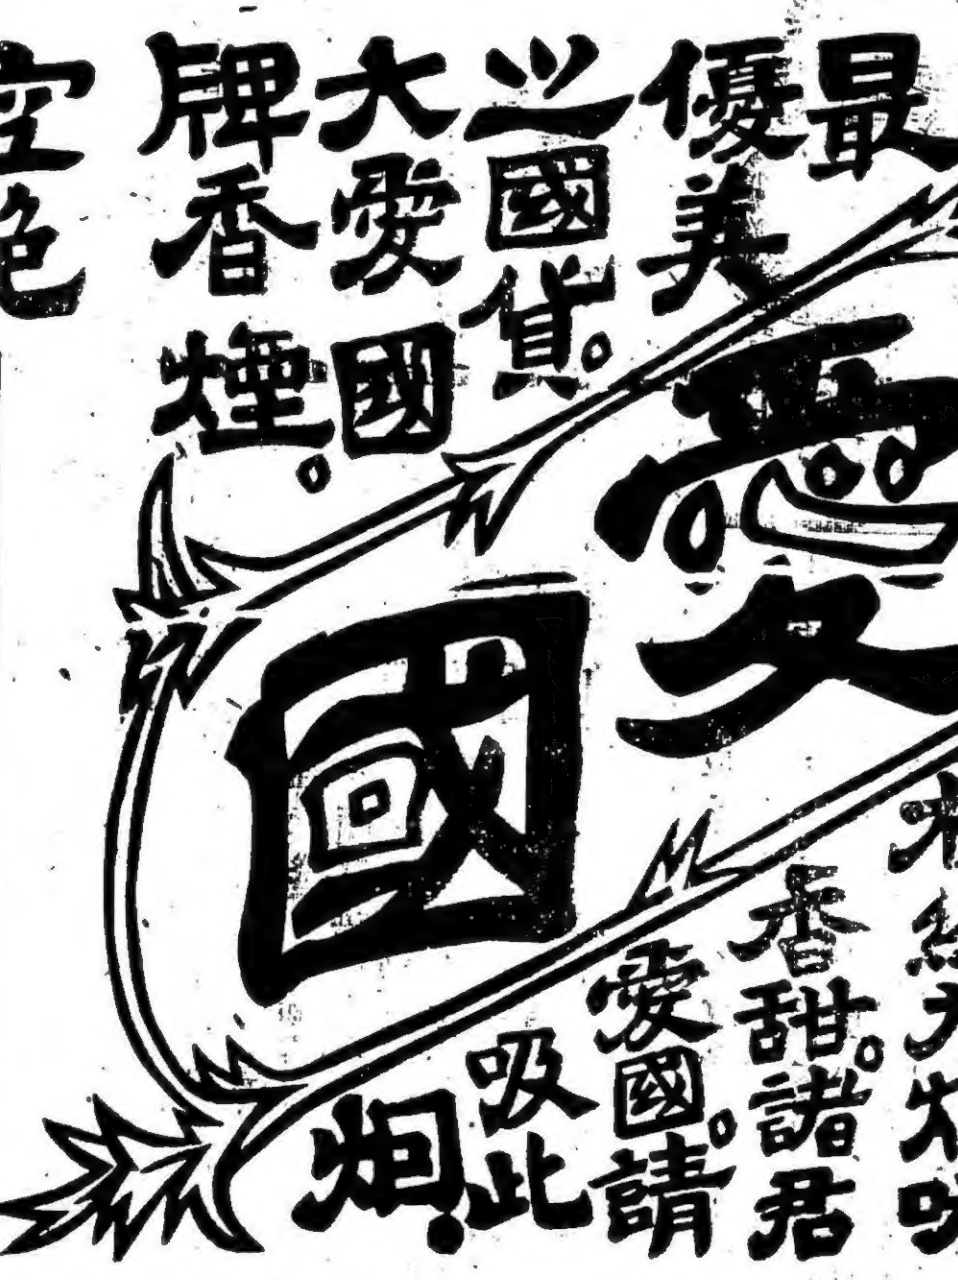 最
優美
之國貨。
大愛國
牌香煙。
空
色
愛國
香甜。諸君
愛國。請
吸此
烟